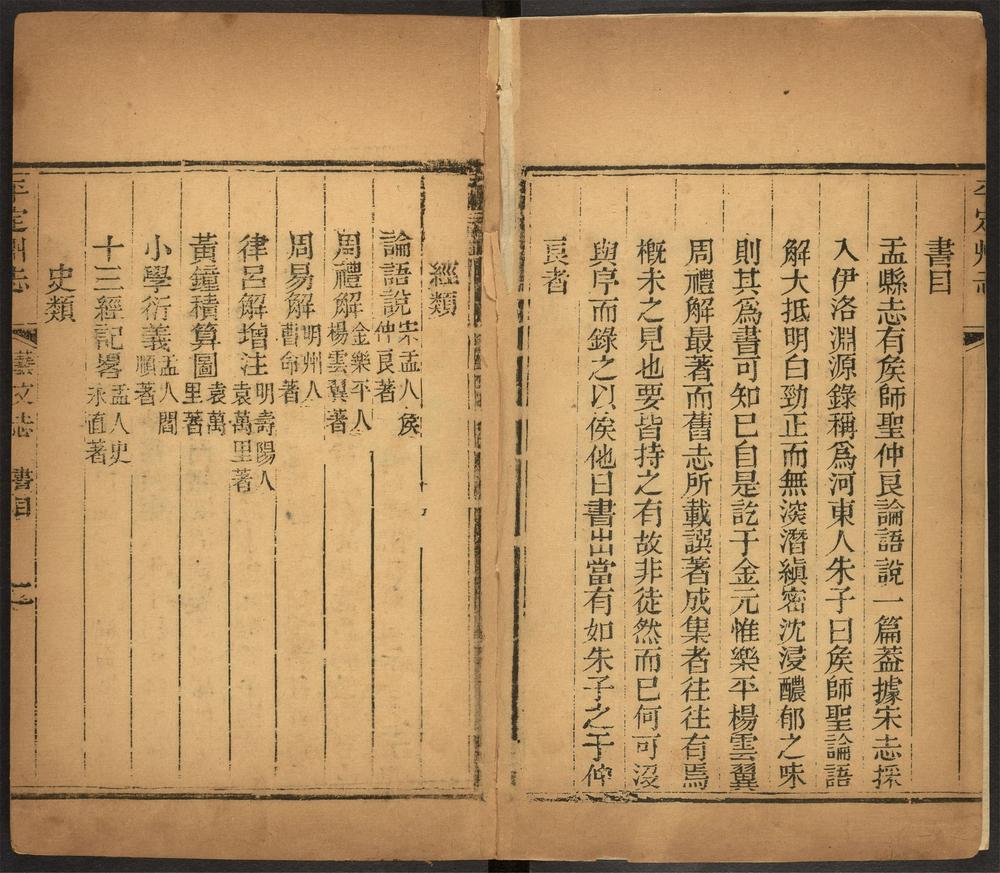 書目
盂縣志有矦師聖仲良論語說一篇葢據宋志採
入伊洛淵源錄稱爲河東人朱子曰矦師聖論語
解大抵明白勁正而無深潛縝密沈浸醲郁之味
則其爲書可知已自是訖于金元惟樂平楊雲翼
周禮解最著而舊志所載譔著成集者往往有焉
槪未之見也要皆持之有故非徒然而已何可沒
與序而錄之以俟他日書出當有如朱子之于仲
良者
經類
論語說宋盂人矦仲良著
周禮解金樂平人楊雲翼著
周易解明州人曹命著
律呂解增注明壽陽人袁萬里著
黃鐘積算圖袁萬里著
小學衍義盂人閻順著
十三經記畧盂人史永直著
史類
平定州志
藝文志 書目
一
平定州志